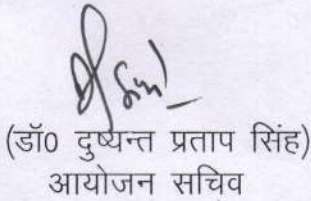 (डॉ0 दुष्यन्त प्रताप सिंह)
आयोजन सचिव